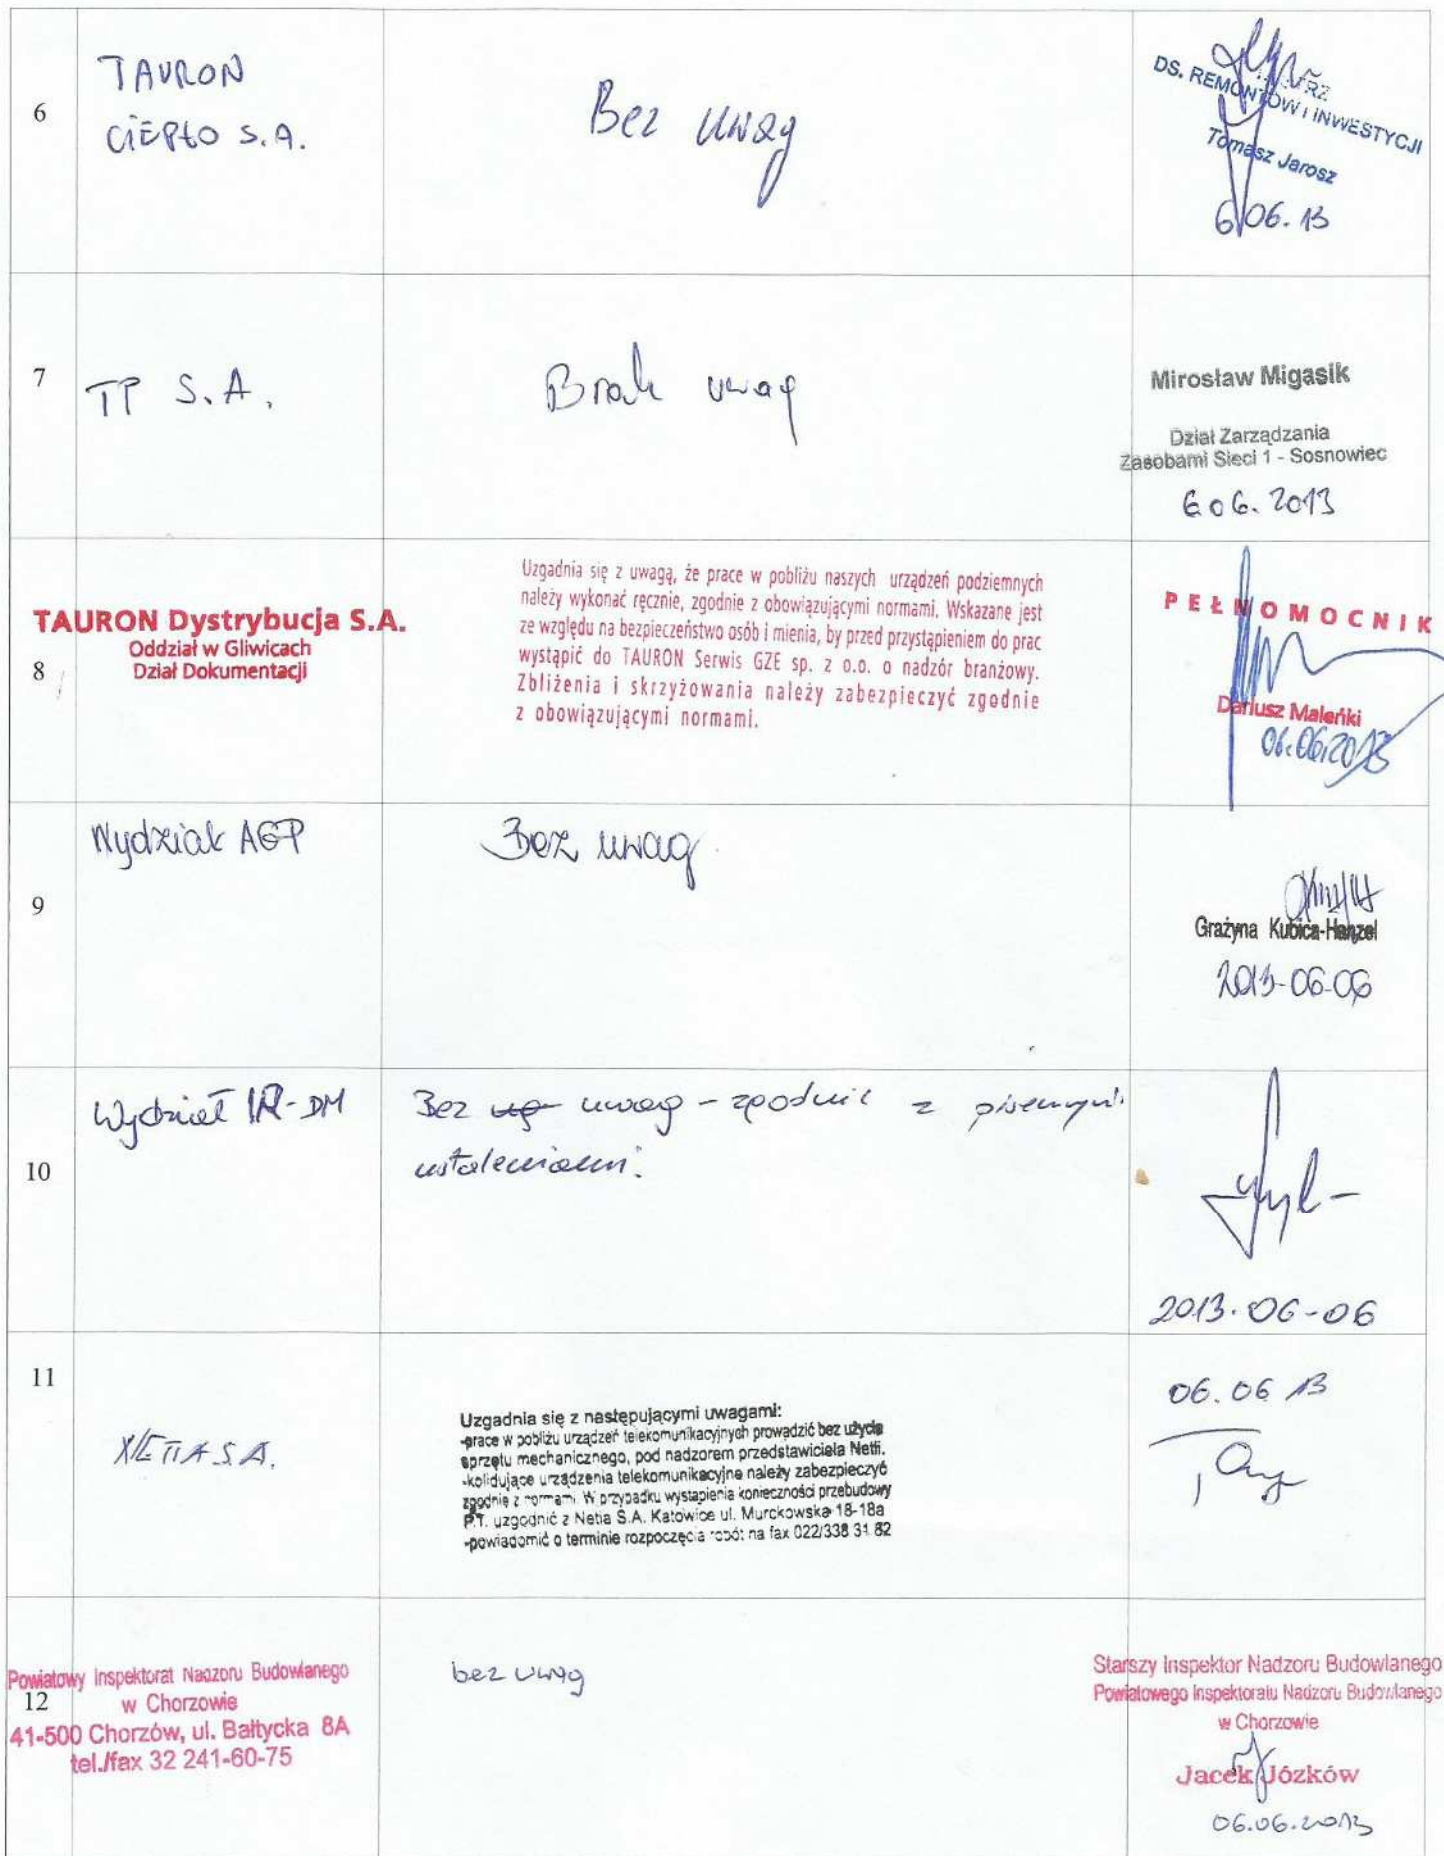 6
TAURON
CIEPŁO S.A.
Bez uwag
DS. REMONTÓW I INWESTYCJI
Tomasz Jarosz
6.06.13
7
TP S.A.
Brak uwag
Mirosław Migasik
Dział Zarządzania
Zasobami Sieci 1 - Sosnowiec
6.06.2013
8
TAURON Dystrybucja S.A.
Oddział w Gliwicach
Dział Dokumentacji
Uzgadnia się z uwagą, że prace w pobliżu naszych urządzeń podziemnych
należy wykonać ręcznie, zgodnie z obowiązującymi normami. Wskazane jest
ze względu na bezpieczeństwo osób i mienia, by przed przystąpieniem do prac
wystąpić do TAURON Serwis GZE sp. z o.o. o nadzór branżowy.
Zbliżenia i skrzyżowania należy zabezpieczyć zgodnie
z obowiązującymi normami.
PEŁNOMOCNIK
Dariusz Maleńki
06.06.2013
9
Wydział AGP
Bez uwag
Grażyna Kubica-Hanzel
2013-06-06
10
Wydział IR-DM
Bez uwag - zgodnie z pisemnymi
ustaleniami.
2013-06-06
11
NETIA S.A.
Uzgadnia się z następującymi uwagami:
-prace w pobliżu urządzeń telekomunikacyjnych prowadzić bez użycia
sprzętu mechanicznego, pod nadzorem przedstawiciela Netii.
-kolidujące urządzenia telekomunikacyjne należy zabezpieczyć
zgodnie z normami. W przypadku wystąpienia konieczności przebudowy
P.T. uzgodnić z Netia S.A. Katowice ul. Murckowska 18-18a
-powiadomić o terminie rozpoczęcia robót na fax 022/338 31 82
06.06 13
12
Powiatowy Inspektorat Nadzoru Budowlanego
w Chorzowie
41-500 Chorzów, ul. Bałtycka 8A
tel./fax 32 241-60-75
bez uwag
Starszy Inspektor Nadzoru Budowlanego
Powiatowego Inspektoratu Nadzoru Budowlanego
w Chorzowie
Jacek Józków
06.06.2013